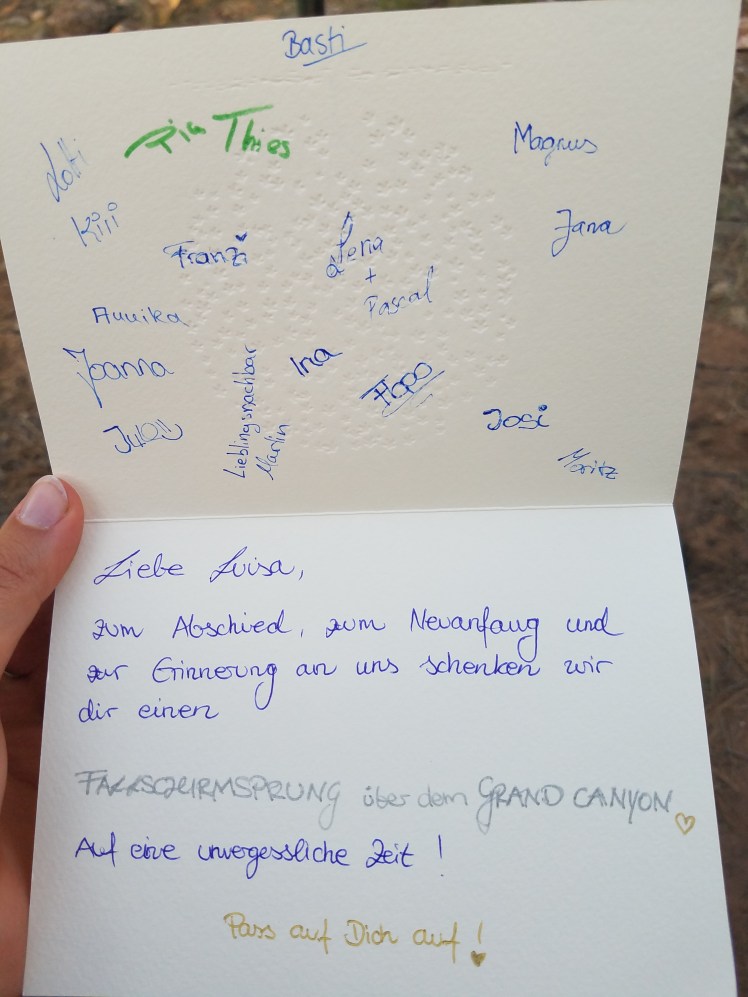 Basti
Thies
Magnus
Lotti
Kiii
Jana
Franzi
Xenia
+
Pascal
Annika
Joanna
Ina
Flopo
Julan
Lieblingsnachbar
Martin
Josi
Moritz
Liebe Luisa,
zum Abschied, zum Neuanfang und
zur Erinnerung an uns schenken wir
dir einen
FALLSCHIRMSPRUNG über dem GRAND CANYON
Auf eine unvergessliche Zeit !
Pass auf Dich auf !